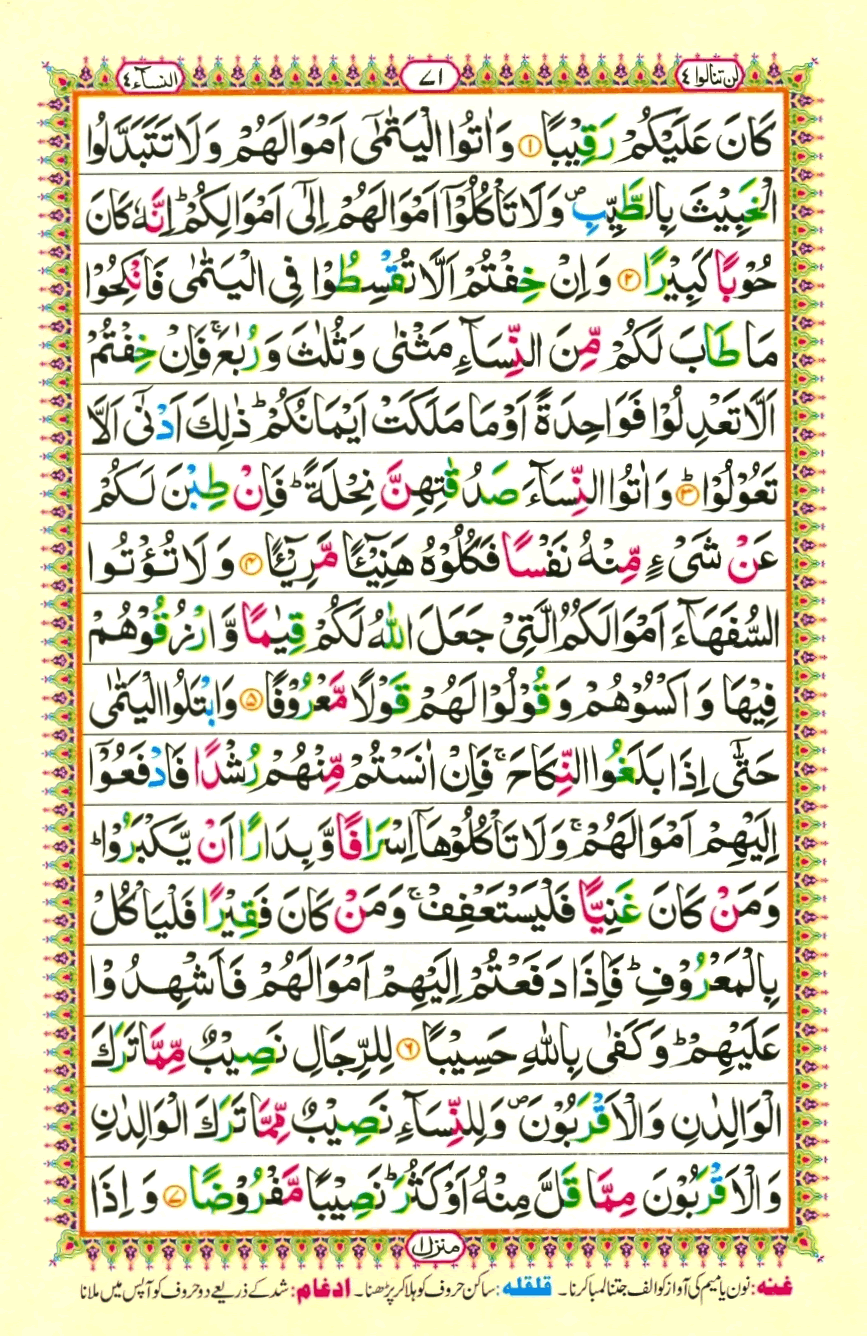 لن تنالوا ٤
٧١
النسآء ٤
كَانَ عَلَيْكُمْ رَقِيْبًا ﴿۱﴾ وَاٰتُوا الْيَتٰمٰٓى اَمْوَالَهُمْ وَلَا تَتَبَدَّلُوا
الْخَبِيْثَ بِالطَّيِّبِ ۪ وَلَا تَاْكُلُوْٓا اَمْوَالَهُمْ اِلٰٓى اَمْوَالِكُمْ ؕ اِنَّهٗ كَانَ
حُوْبًا كَبِيْرًا ﴿۲﴾ وَاِنْ خِفْتُمْ اَلَّا تُقْسِطُوْا فِى الْيَتٰمٰى فَانْكِحُوْا
مَا طَابَ لَكُمْ مِّنَ النِّسَآءِ مَثْنٰى وَثُلٰثَ وَرُبٰعَ ۚ فَاِنْ خِفْتُمْ
اَلَّا تَعْدِلُوْا فَوَاحِدَةً اَوْ مَا مَلَكَتْ اَيْمَانُكُمْ ؕ ذٰلِكَ اَدْنٰٓى اَلَّا
تَعُوْلُوْا ؕ﴿۳﴾ وَاٰتُوا النِّسَآءَ صَدُقٰتِهِنَّ نِحْلَةً ؕ فَاِنْ طِبْنَ لَكُمْ
عَنْ شَىْءٍ مِّنْهُ نَفْسًا فَكُلُوْهُ هَنِيْٓئًا مَّرِيْٓئًا ﴿۴﴾ وَلَا تُؤْتُوا
السُّفَهَآءَ اَمْوَالَكُمُ الَّتِىْ جَعَلَ اللّٰهُ لَكُمْ قِيٰمًا وَّارْزُقُوْهُمْ
فِيْهَا وَاكْسُوْهُمْ وَقُوْلُوْا لَهُمْ قَوْلًا مَّعْرُوْفًا ﴿۵﴾ وَابْتَلُوا الْيَتٰمٰى
حَتّٰٓى اِذَا بَلَغُوا النِّكَاحَ ۚ فَاِنْ اٰنَسْتُمْ مِّنْهُمْ رُشْدًا فَادْفَعُوْٓا
اِلَيْهِمْ اَمْوَالَهُمْ ۚ وَلَا تَاْكُلُوْهَآ اِسْرَافًا وَّبِدَارًا اَنْ يَّكْبَرُوْا ؕ
وَمَنْ كَانَ غَنِيًّا فَلْيَسْتَعْفِفْ ۚ وَمَنْ كَانَ فَقِيْرًا فَلْيَاْكُلْ
بِالْمَعْرُوْفِ ؕ فَاِذَا دَفَعْتُمْ اِلَيْهِمْ اَمْوَالَهُمْ فَاَشْهِدُوْا
عَلَيْهِمْ ؕ وَكَفٰى بِاللّٰهِ حَسِيْبًا ﴿۶﴾ لِلرِّجَالِ نَصِيْبٌ مِّمَّا تَرَكَ
الْوَالِدٰنِ وَالْاَقْرَبُوْنَ ۪ وَلِلنِّسَآءِ نَصِيْبٌ مِّمَّا تَرَكَ الْوَالِدٰنِ
وَالْاَقْرَبُوْنَ مِمَّا قَلَّ مِنْهُ اَوْ كَثُرَ ؕ نَصِيْبًا مَّفْرُوْضًا ﴿۷﴾ وَاِذَا
منزل ۱
غنه: نون یا میم کی آواز کو الف جتنا لمبا کرنا۔ قلقله: ساکن حروف کو ہلا کر پڑھنا۔ ادغام: شد کے ذریعے دو حروف کو آپس میں ملانا